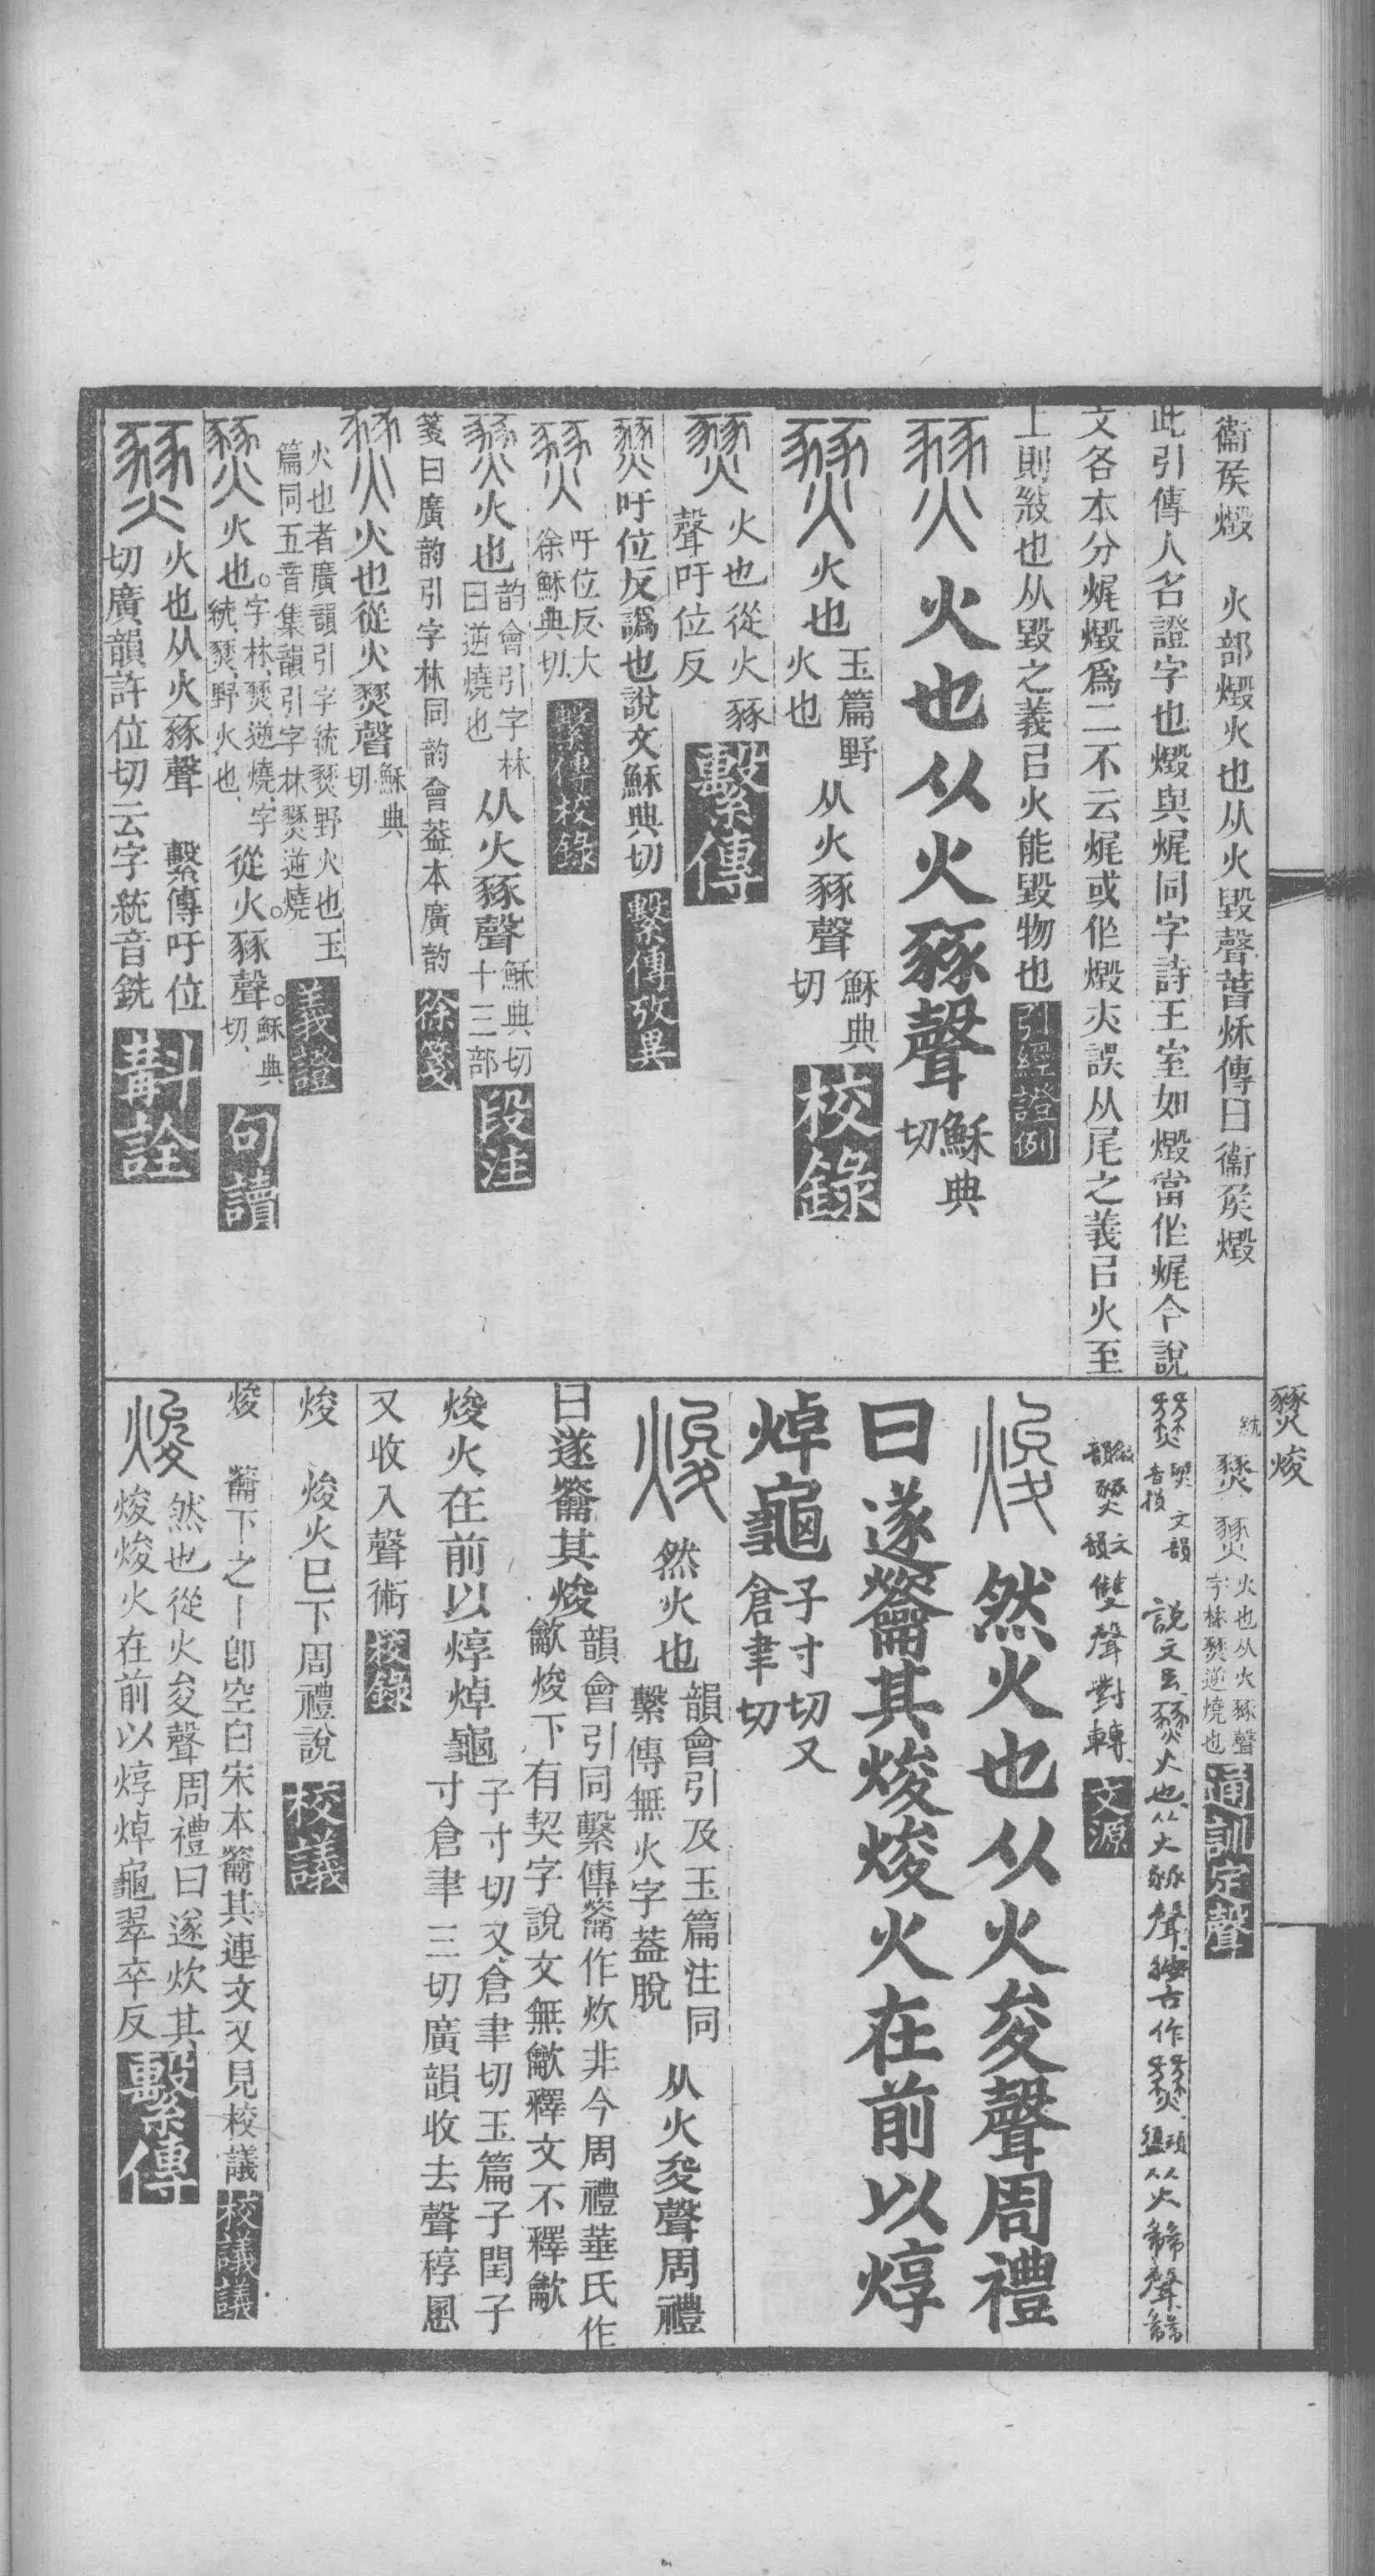 衞矦燬　火部燬火也从火毀聲萅秌傳曰衞矦燬
此引傳人名證字也燬與焜同字詩王室如燬當作焜今說
文各本分焜燬爲二不云焜或作燬夫誤从尾之義㠯火至
上則敍也从毀之義㠯火能毀物也引經證例
燹火也从火豩聲穌典切
燹火也玉篇野火也从火豩聲穌典切校錄
燹火也從火豩聲吁位反繫傳
燹吁位反譌也說文穌典切繫傳攷異
燹吁位反大徐穌典切繫傳校錄
燹火也韵會引字林曰逆燒也从火豩聲穌典切十三部段注
箋曰廣韵引字林同韵會葢本廣韵徐箋
燹火也從火豩聲穌典切
火也者廣韻引字統燹野火也玉篇同五音集韻引字林燹逆燒義證
燹火也。字林、燹逆燒、字統、燹、野火也、從火。豩聲。穌典切、句讀
燹火也从火豩聲　繫傳吁位切廣韻許位切云字統音銑斠詮
燹焌
統
燹燹火也从火豩聲字林燹逆燒也通訓定聲
說文云燹火也从火豩聲
韻燹文韻雙聲對轉文源
焌然火也从火夋聲周禮
曰遂籥其焌焌火在前以焞
焯龜子寸切又倉聿切
焌然火也韻會引及玉篇注同繫傳無火字葢脫从火夋聲周禮
曰遂籥其焌韻會引同繫傳籥作炊非今周禮菙氏作龡焌下有契字說文無龡釋文不釋龡
焌火在前以焞焯龜子寸切又倉聿切玉篇子閏子寸倉聿三切廣韻收去聲稕慁
又收入聲術校錄
焌　焌火巳下周禮說校議
焌　籥下之丨卽空白宋本籥其連文又見校議校議議
焌然也從火夋聲周禮曰遂炊其焌焌火在前以焞焯龜翠卒反繫傳